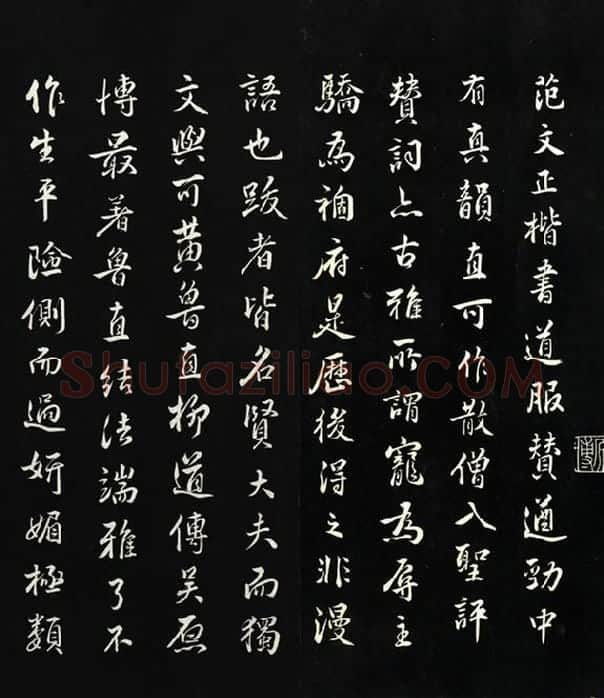 范文正楷書道服贊遒勁中
有真韻直可作散僧入聖評
贊詞亦古雅所謂寵為辱主
驕為禍府是歷後得之非漫
語也跋者皆名賢大夫而獨
文與可黃魯直柳道傳吳原
博最著魯直結法端雅了不
作生平險側而過妍媚極類
Shufaziliao.COM